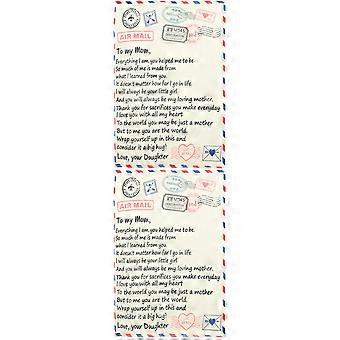 AIR MAIL
To my Mom,
Everything I am you helped me to be.
So much of me is made from
what I learned from you.
It doesn't matter how far I go in life
I will always be your little girl
And you will always be my loving mother.
Thank you for sacrifices you make everyday
I love you with all my heart
To the world you may be just a mother
But to me you are the world.
Wrap yourself up in this and
consider it a big hug!
Love, your Daughter
AIR MAIL
To my Mom,
Everything I am you helped me to be.
So much of me is made from
what I learned from you.
It doesn't matter how far I go in life
I will always be your little girl
And you will always be my loving mother.
Thank you for sacrifices you make everyday
I love you with all my heart
To the world you may be just a mother
But to me you are the world.
Wrap yourself up in this and
consider it a big hug!
Love, your Daughter